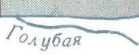 Голубая